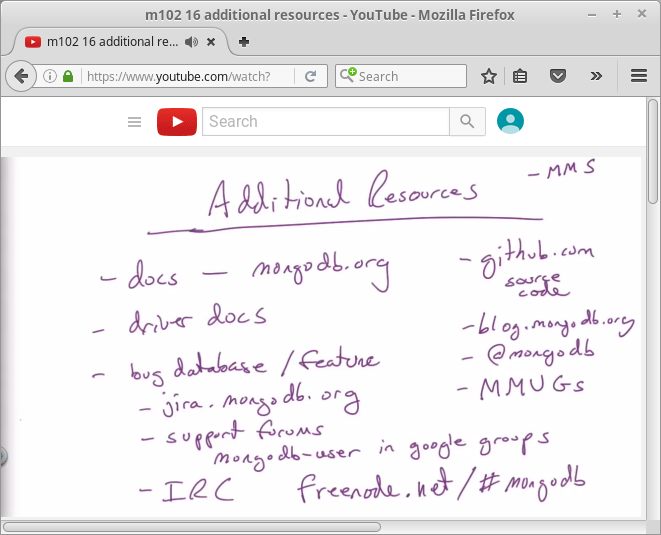 m102 16 additional resources - YouTube - Mozilla Firefox
m102 16 additional re...
https://www.youtube.com/watch?
Search
Search
Additional Resources
- MMS
- docs — mongodb.org
- driver docs
- bug database / feature
- jira.mongodb.org
- support forums
mongodb-user in google groups
- IRC freenode.net/#mongodb
- github.com
source
code
- blog.mongodb.org
- @mongodb
- MMUGs